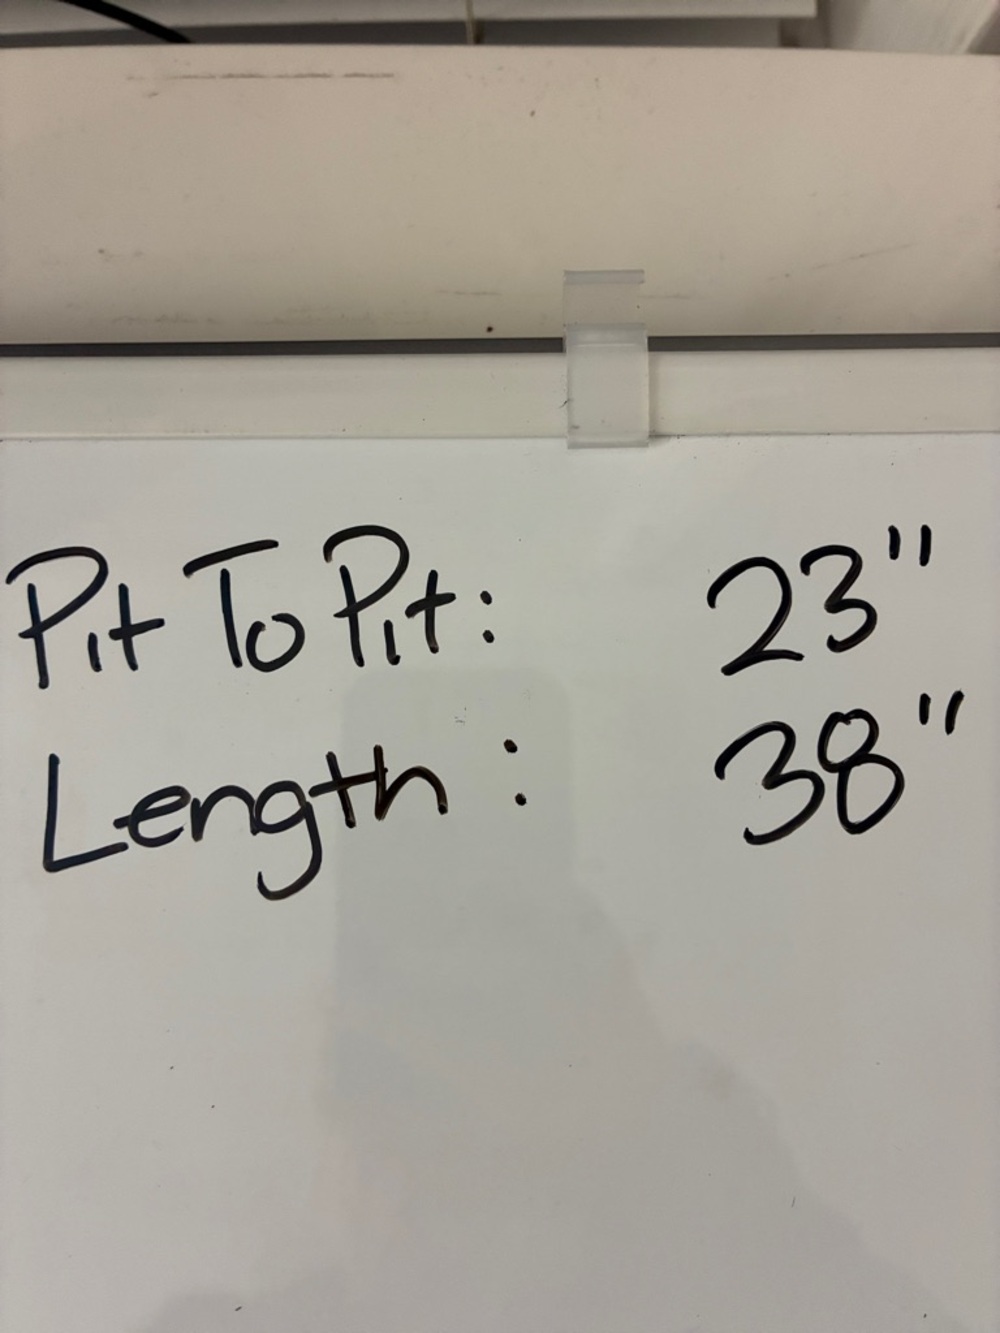 Pit To Pit: 23"
Length: 38"